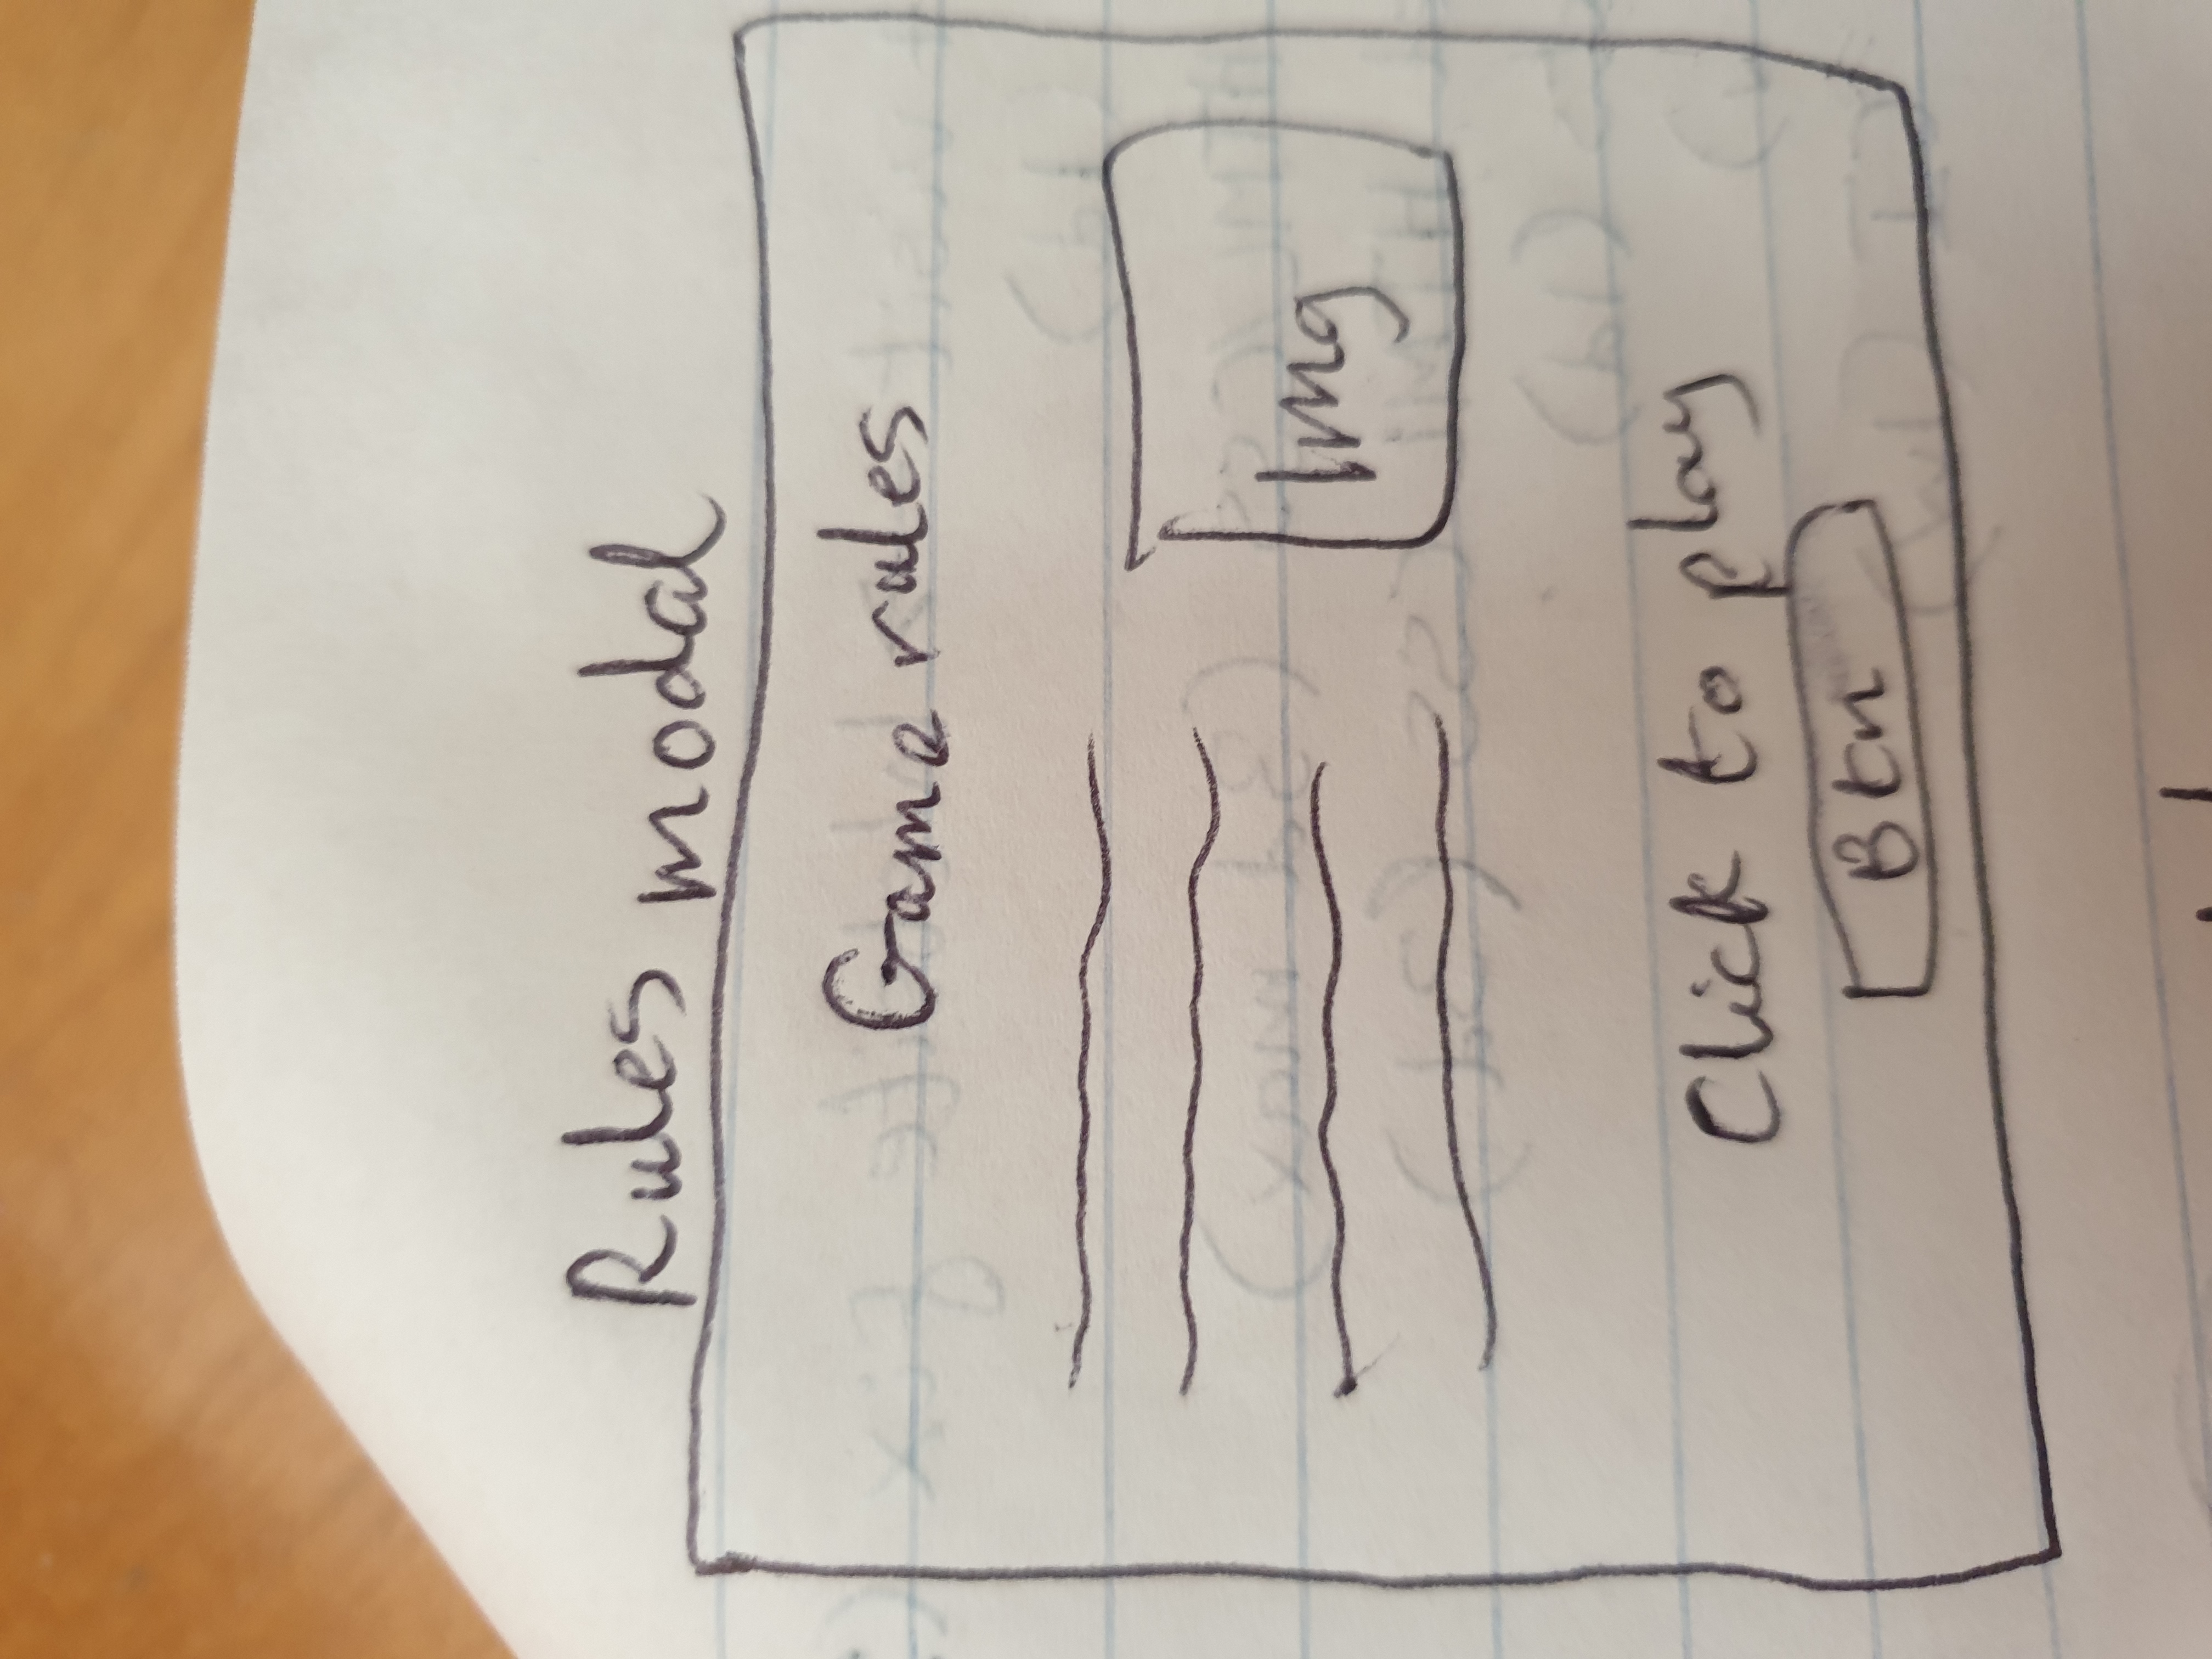 Rules modal
Game rules
Img
Click to play
Btn